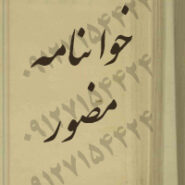 خوابنامه
مصور
۰۹۱۲۷۱۵۴۴۲۴
۰۹۱۲۷۱۵۴۴۲۴
۰۹۱۲۷۱۵۴۴۲۴